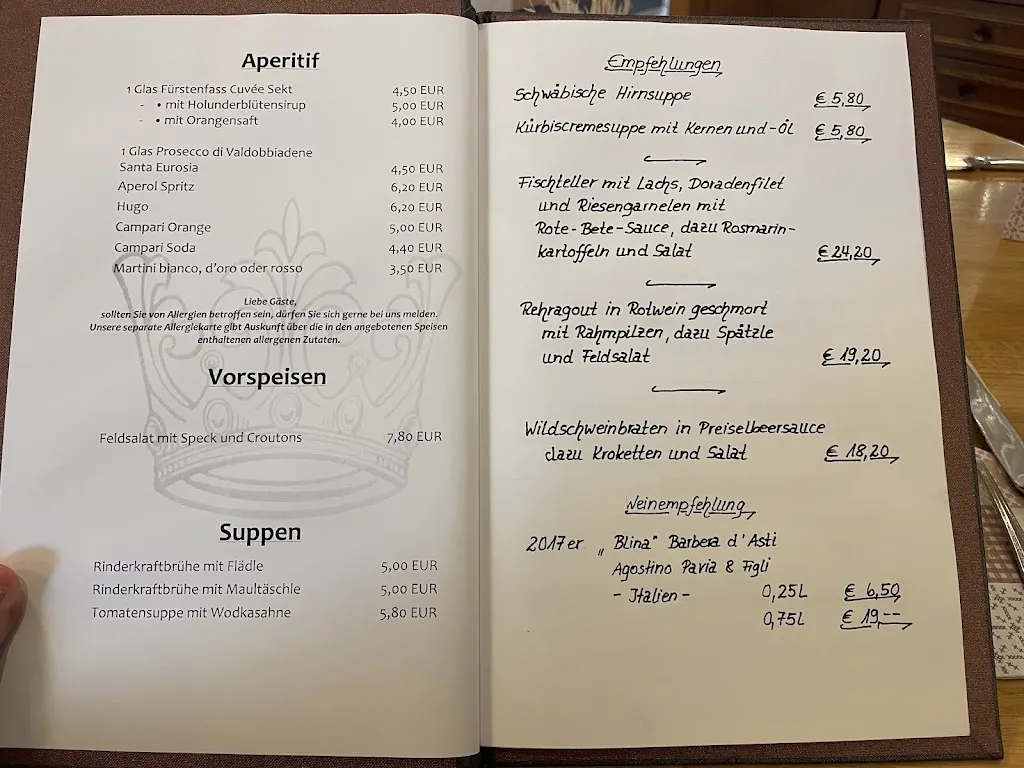 Aperitif
1 Glas Fürstenfass Cuvée Sekt 4,50 EUR
- • mit Holunderblütensirup 5,00 EUR
- • mit Orangensaft 4,00 EUR
1 Glas Prosecco di Valdobbiadene
Santa Eurosia 4,50 EUR
Aperol Spritz 6,20 EUR
Hugo 6,20 EUR
Campari Orange 5,00 EUR
Campari Soda 4,40 EUR
Martini bianco, d'oro oder rosso 3,50 EUR
Liebe Gäste,
sollten Sie von Allergien betroffen sein, dürfen Sie sich gerne bei uns melden.
Unsere separate Allergiekarte gibt Auskunft über die in den angebotenen Speisen
enthaltenen allergenen Zutaten.
Vorspeisen
Feldsalat mit Speck und Croutons 7,80 EUR
Suppen
Rinderkraftbrühe mit Flädle 5,00 EUR
Rinderkraftbrühe mit Maultäschle 5,00 EUR
Tomatensuppe mit Wodkasahne 5,80 EUR
Empfehlungen
Schwäbische Hirnsuppe € 5,80
Kürbiscremesuppe mit Kernen und -Öl € 5,80
Fischteller mit Lachs, Doradenfilet
und Riesengarnelen mit
Rote-Bete-Sauce, dazu Rosmarin-
kartoffeln und Salat € 24,20
Rehragout in Rotwein geschmort
mit Rahmpilzen, dazu Spätzle
und Feldsalat € 19,20
Wildschweinbraten in Preiselbeersauce
dazu Kroketten und Salat € 18,20
Weinempfehlung
2017er „Blina" Barbera d'Asti
Agostino Pavia & Figli
- Italien - 0,25L € 6,50
0,75L € 19,--